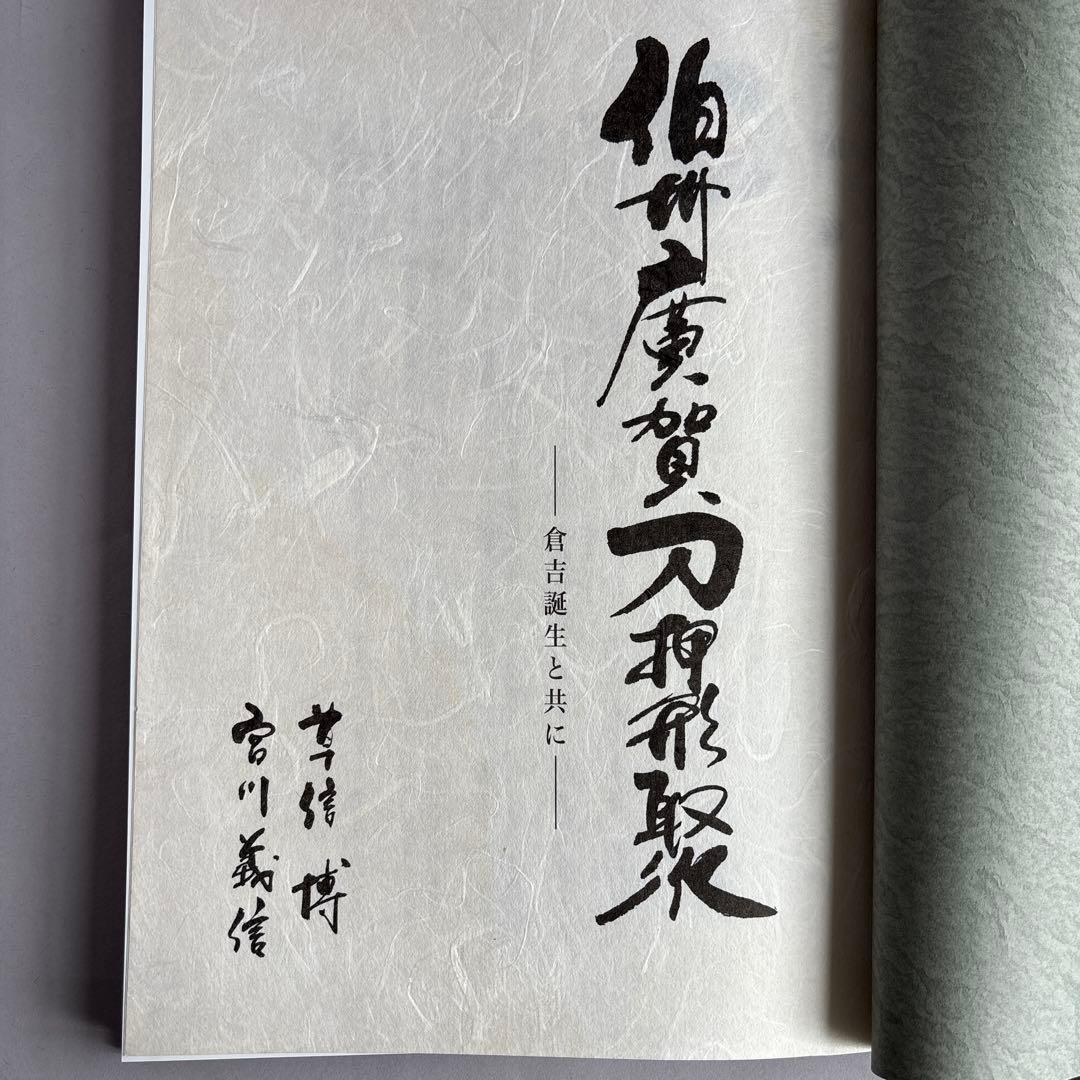 伯州廣賀刀押形聚
―倉吉誕生と共に―
草信 博
宮川義信